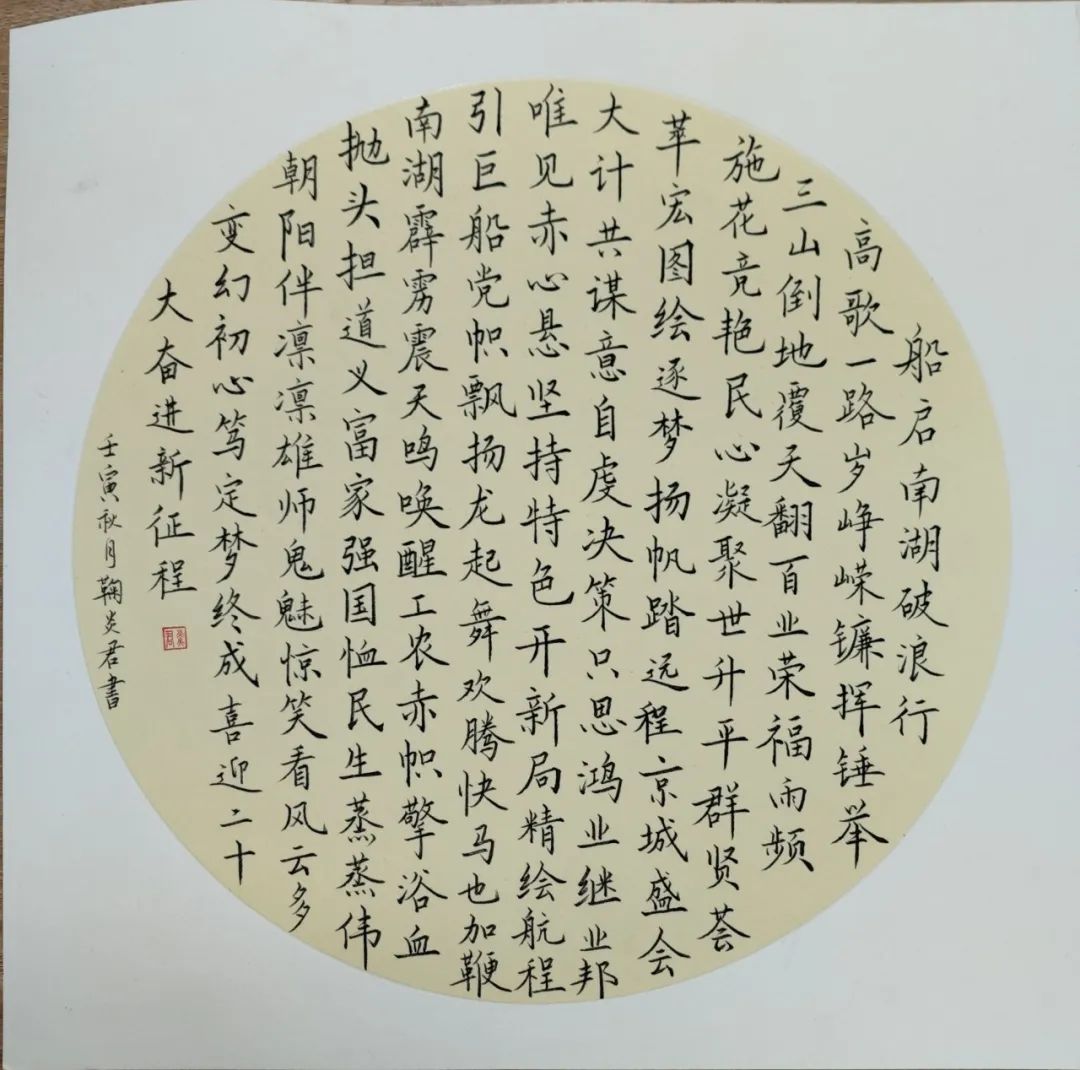 船启南湖破浪行
高歌一路岁峥嵘镰挥锤举
三山倒地覆天翻百业荣福雨频
施花竞艳民心凝聚世升平群贤荟
萃宏图绘逐梦扬帆踏远程京城盛会
大计共谋意自虔决策只思鸿业继业邦
唯见赤心悬坚持特色开新局精绘航程
引巨船党帜飘扬龙起舞欢腾快马也加鞭
南湖霹雳震天鸣唤醒工农赤帜擎浴血
抛头担道义富家强国恤民生蒸蒸伟
朝阳伴凛凛雄师鬼魅惊笑看风云多
变幻初心笃定梦终成喜迎二十
大奋进新征程
壬寅秋月鞠炎君書